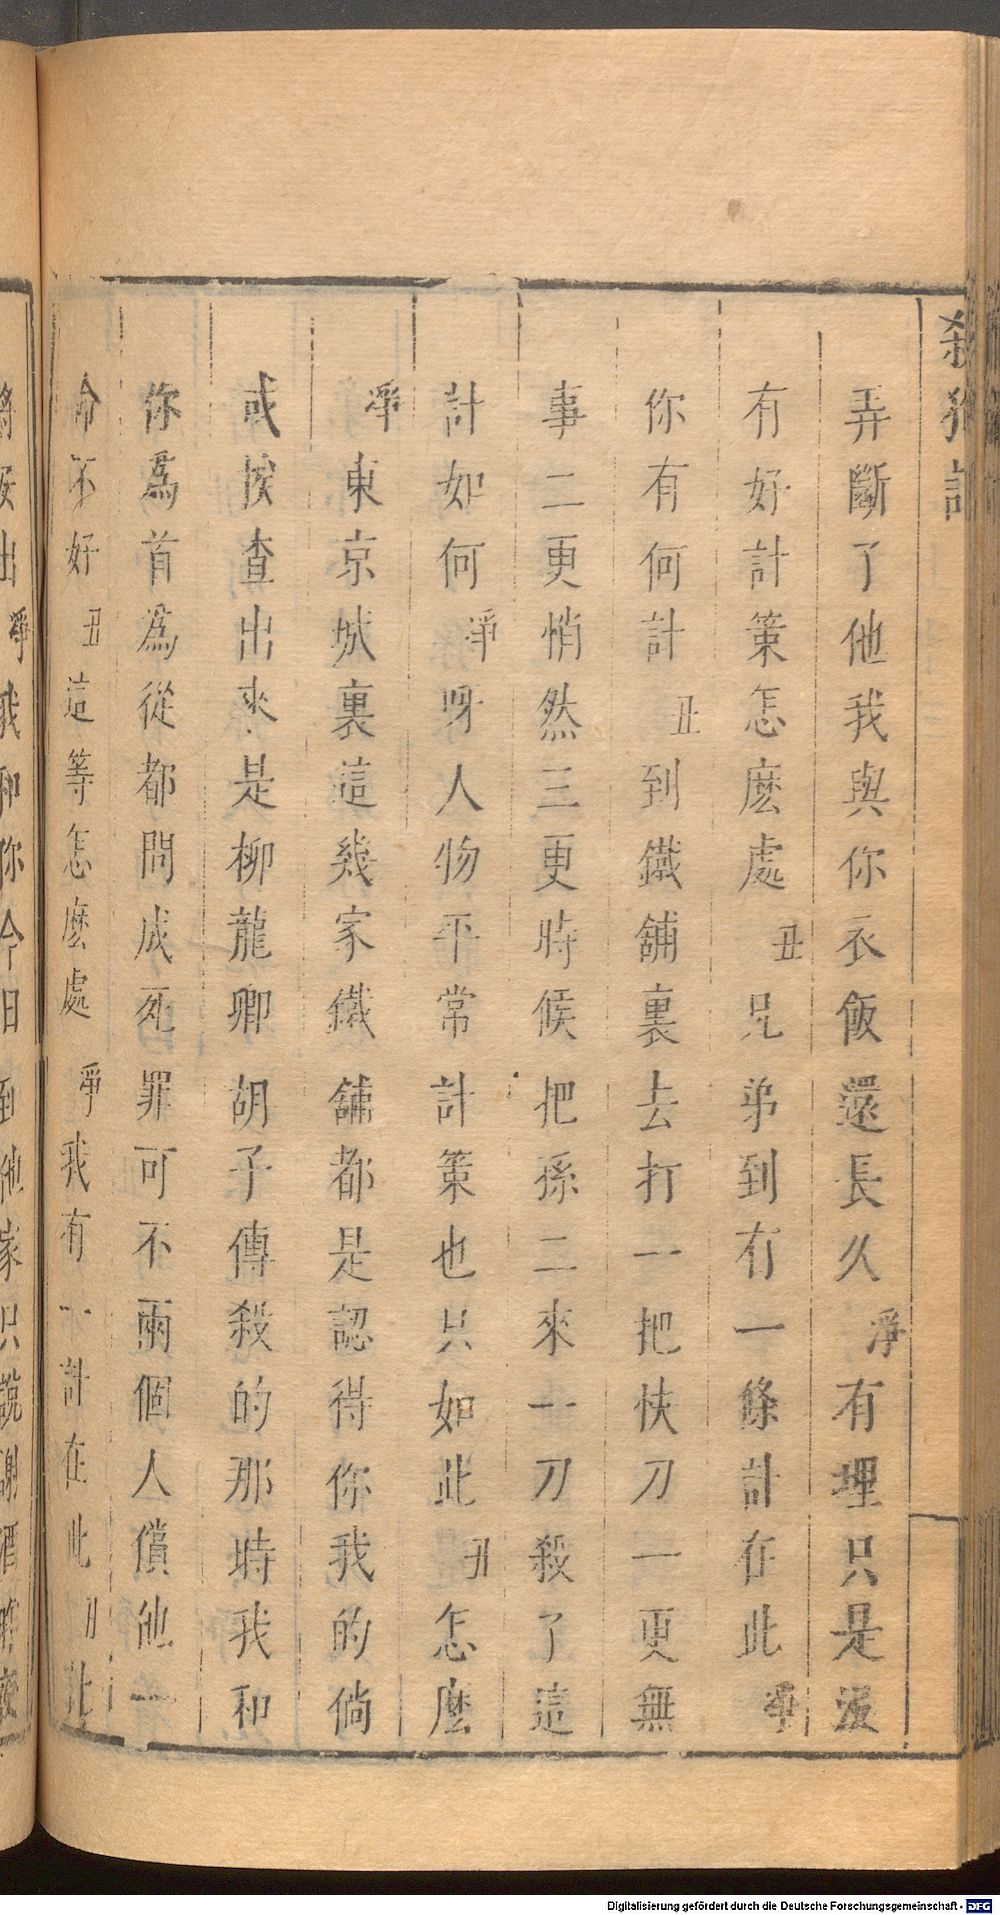 殺狗記
弄斷了他我與你衣飯還長久淨有理只是沒
有好計策怎麽處丑兄弟到有一條計在此淨
你有何計丑到鐵舖裏去打一把快刀一更無
事二更悄然三更時候把孫二來一刀殺了這
計如何淨呀人物平常計策也只如此丑怎麽
淨東京城裏這幾家鐵舖都是認得你我的倘
或挨查出來是柳龍卿胡子傳殺的那時我和
你爲首爲從都問成死罪可不兩個人償他一
命不好丑這等怎麽處淨我有一計在此丑
出淨我和你今日到他家只說謝酒昨夜
Digitalisierung gefördert durch die Deutsche Forschungsgemeinschaft - DFG